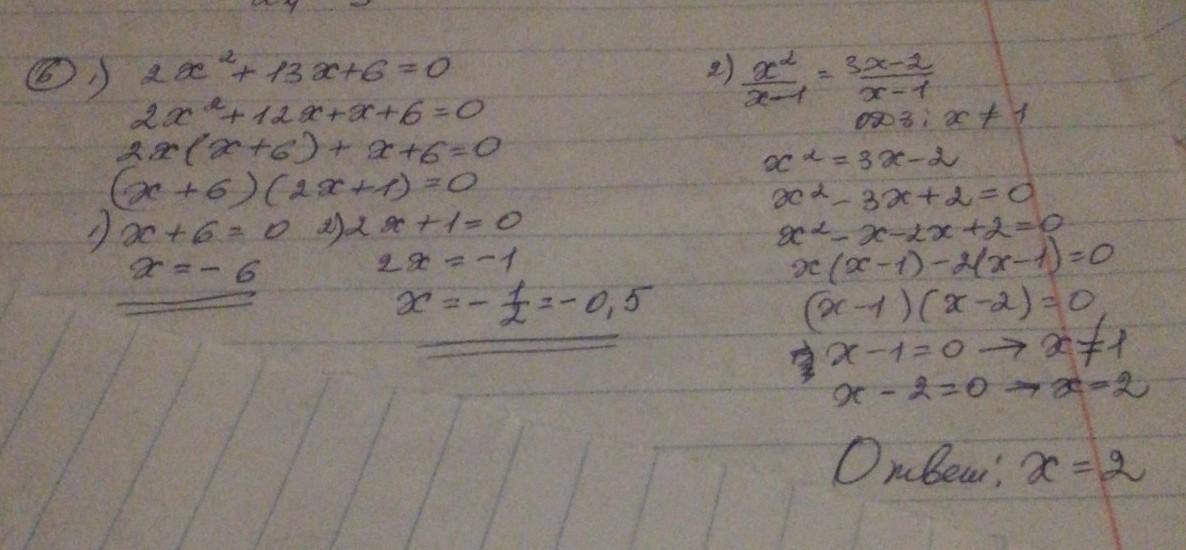 ⑥ 1) 2x² + 13x + 6 = 0
2x² + 12x + x + 6 = 0
2x(x+6) + x+6 = 0
(x+6)(2x+1) = 0
1) x + 6 = 0 2) 2x + 1 = 0
x = -6 2x = -1
x = -1/2 = -0,5
2) x²/(x-1) = (3x-2)/(x-1)
ОДЗ: x ≠ 1
x² = 3x-2
x² - 3x + 2 = 0
x² - x - 2x + 2 = 0
x(x-1) - 2(x-1) = 0
(x-1)(x-2) = 0
x - 1 = 0 → x ≠ 1
x - 2 = 0 → x = 2
Ответ: x = 2